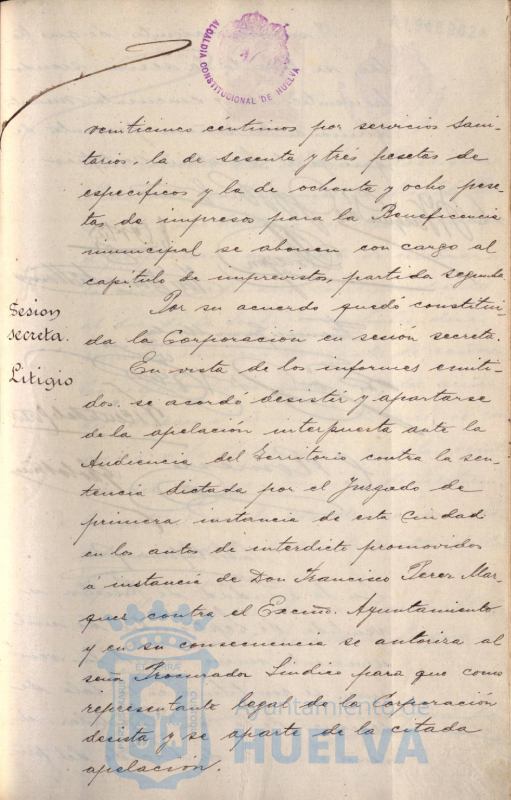 ALCALDIA CONSTITUCIONAL DE HUELVA
veinticinco céntimos por servicios sani-
tarios, la de sesenta y tres pesetas de
específicos y la de ochenta y ocho pese-
tas de impresos para la Beneficencia
municipal se abonen con cargo al
capítulo de imprevistos, partida segunda
Sesion
secreta.
Por su acuerdo quedó constitui-
da la Corporación en sesión secreta.
Litigio
En vista de los informes emiti-
dos se acordó desistir y apartarse
de la apelación interpuesta ante la
Audiencia del Territorio contra la sen-
tencia dictada por el Juzgado de
primera instancia de esta Ciudad
en los autos de interdicto promovidos
á instancia de Don Francisco Perez Mar-
quez contra el Excmo. Ayuntamiento
y en su consecuencia se autoriza al
señor Procurador Síndico para que como
representante legal de la Corporación
desista y se aparte de la citada
apelación.
Ayuntamiento de
HUELVA